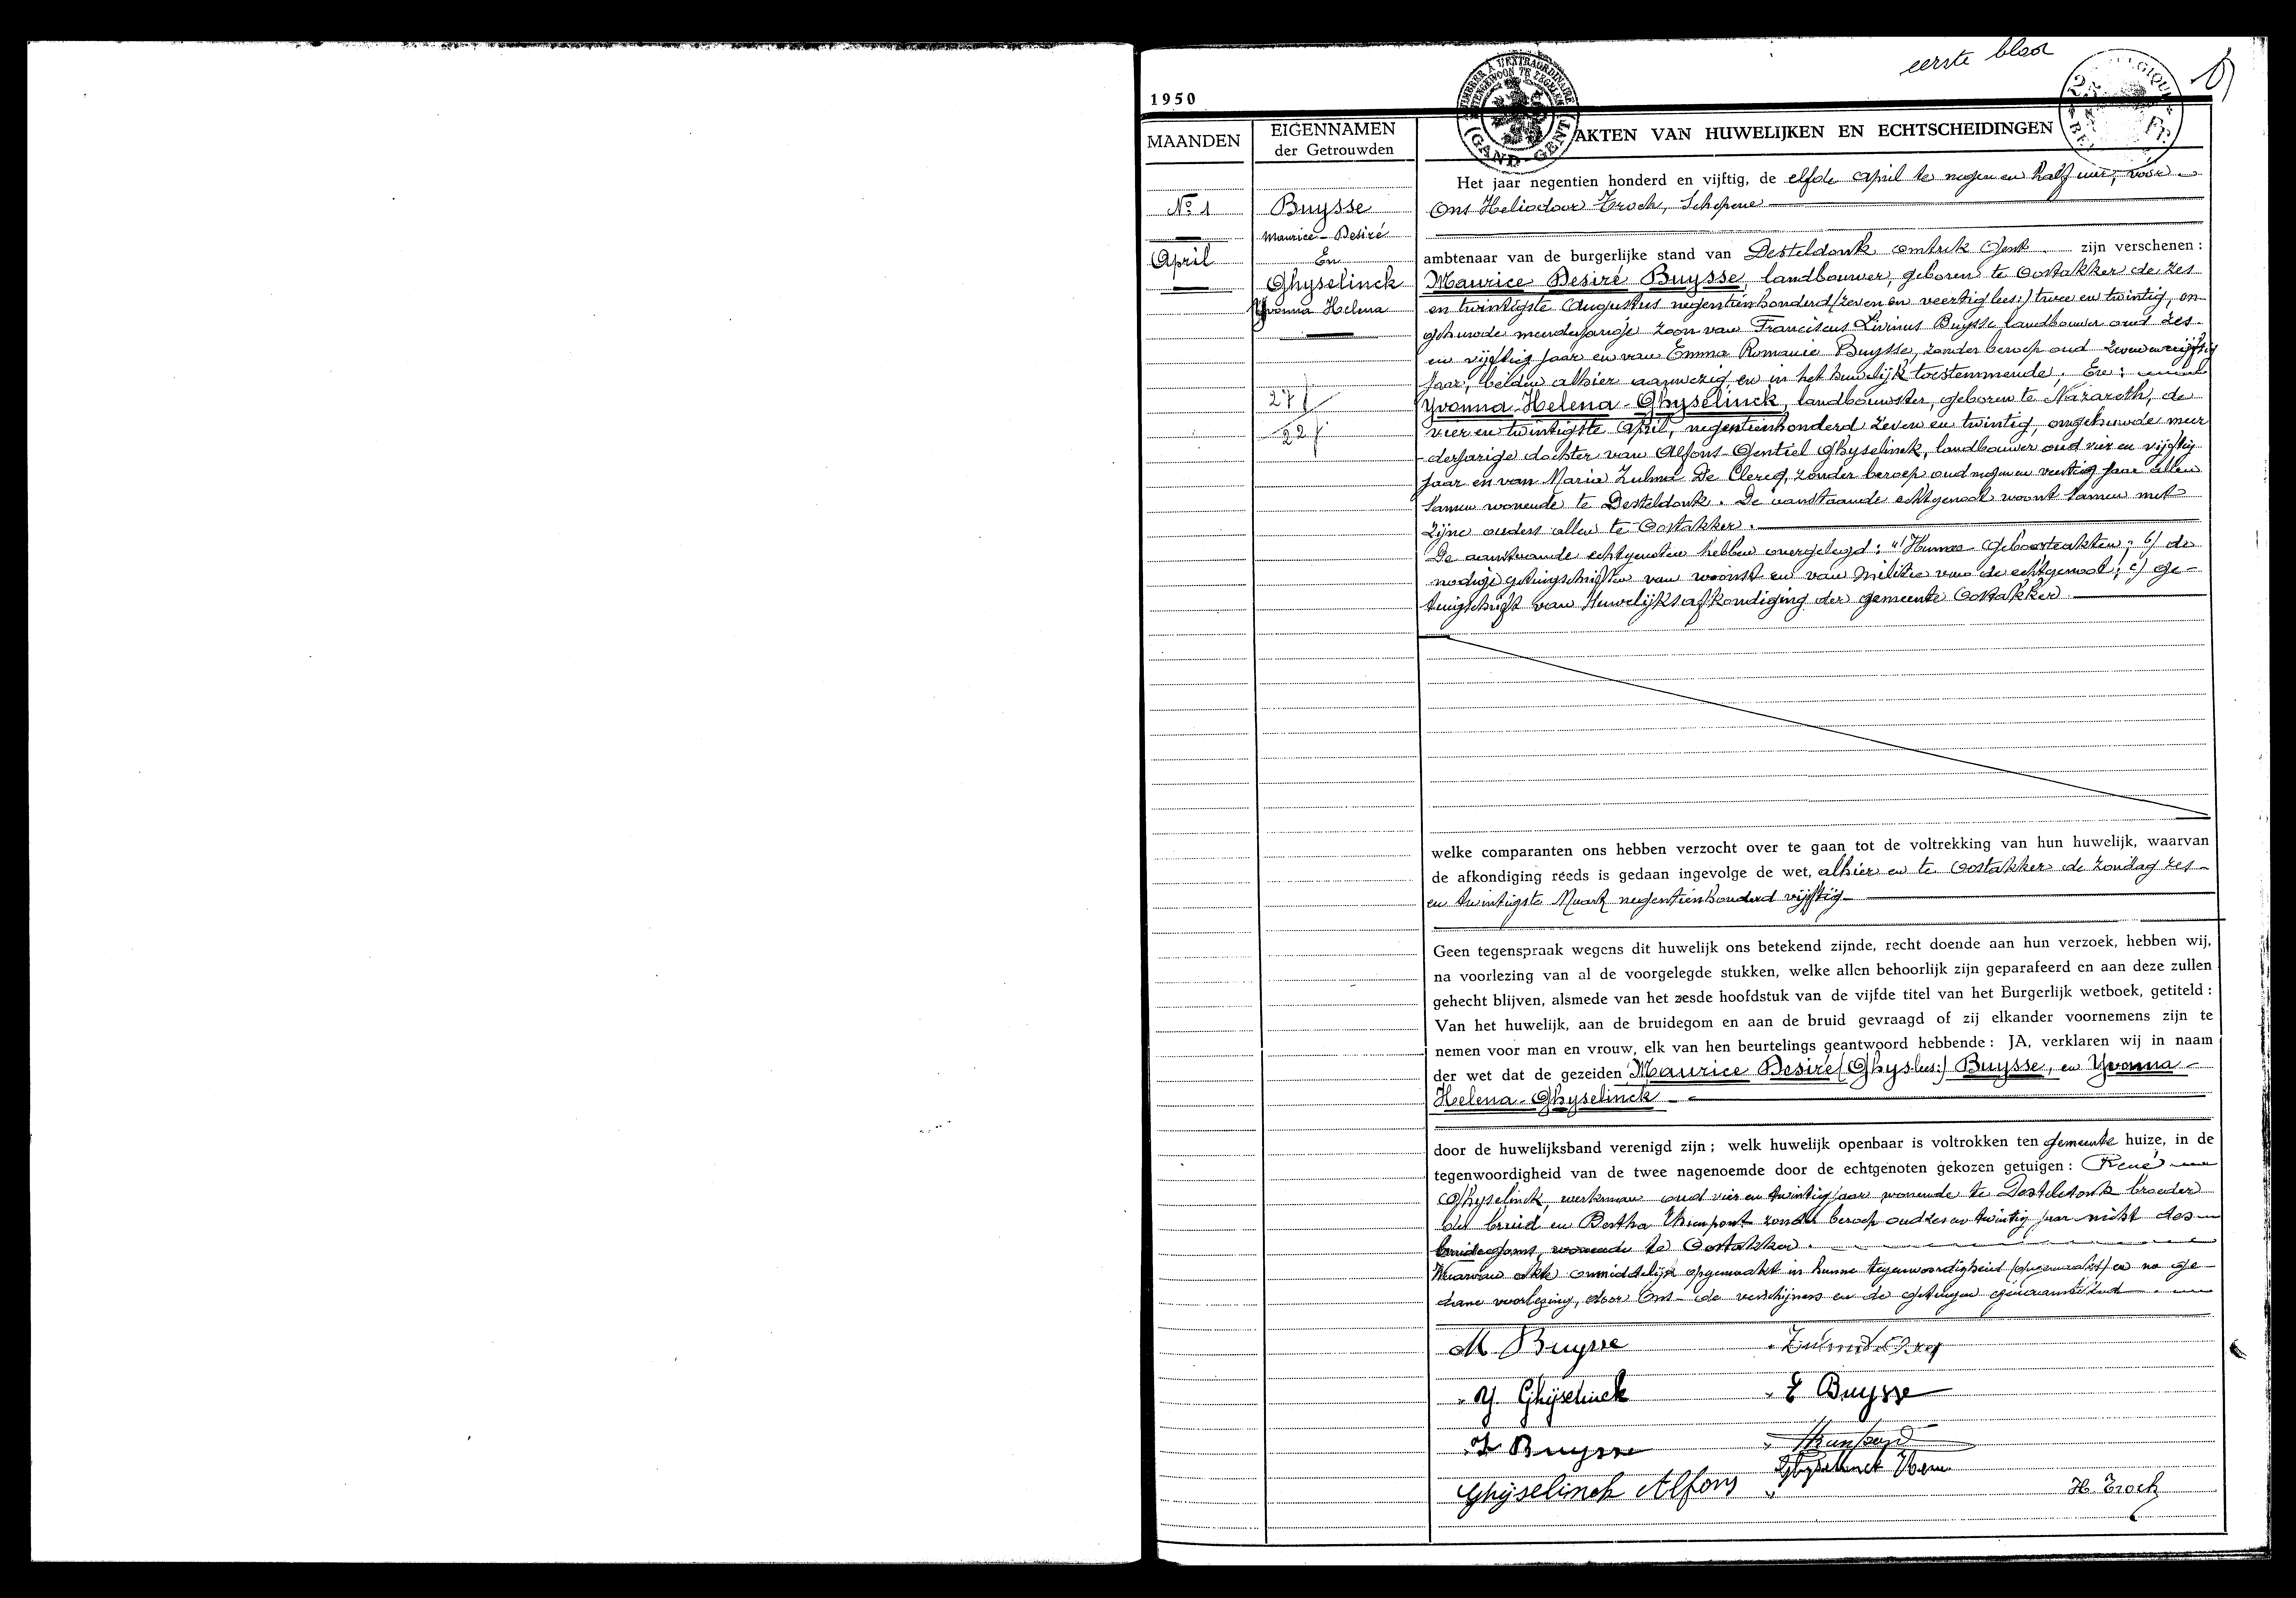 eerste blad
1950
TIMBER A L'EXTRAORDINAIRE
BUITENGEWOON TE ZEGELEN
(GAND-GENT)
BELGIQUE
2 Fr.
MAANDEN
EIGENNAMEN
der Getrouwden
AKTEN VAN HUWELIJKEN EN ECHTSCHEIDINGEN
No 1
April
Buysse
Maurice-Desiré
En
Ghyselinck
Yvonna Helena
27 j
22 j
Het jaar negentien honderd en vijftig, de elfde april te negen en half uur, vóór
Ons Heliodoor Troch, Schepene
ambtenaar van de burgerlijke stand van Desteldonk omtrek Gent zijn verschenen :
Maurice Desiré Buysse, landbouwer, geboren te Oostakker de zes
en twintigste Augustus negentienhonderd (zeven en veertig lees:) twee en twintig, on-
gehuwde meerderjarige zoon van Franciscus Livinus Buysse landbouwer oud zes-
en vijftig jaar en van Emma Romanie Buysse, zonder beroep oud zeven en vijftig
jaar, beiden alhier aanwezig en in het huwelijk toestemmende. En :
Yvonna-Helena-Ghyselinck, landbouwster, geboren te Nazareth, de
vier en twintigste April, negentienhonderd zeven en twintig, ongehuwde meer
-derjarige dochter van Alfons-Gentiel Ghyselinck, landbouwer oud vier en vijftig
jaar en van Maria Zulma De Clercq, zonder beroep oud negen en veertig jaar allen
samen wonende te Desteldonk. De aanstaande echtgenoot woont samen met
zijne ouders allen te Oostakker.
De aanstaande echtgenoten hebben overgelegd : a) Hunne Geboorteakten ; b) de
nodige getuigschriften van woonst en van Militie van de echtgenoot ; c) ge-
tuigschrift van Huwelijksafkondiging der gemeente Oostakker
welke comparanten ons hebben verzocht over te gaan tot de voltrekking van hun huwelijk, waarvan
de afkondiging reeds is gedaan ingevolge de wet, alhier en te Oostakker de zondag zes-
en twintigste Maart negentienhonderd vijftig
Geen tegenspraak wegens dit huwelijk ons betekend zijnde, recht doende aan hun verzoek, hebben wij,
na voorlezing van al de voorgelegde stukken, welke allen behoorlijk zijn geparafeerd en aan deze zullen
gehecht blijven, alsmede van het zesde hoofdstuk van de vijfde titel van het Burgerlijk wetboek, getiteld :
Van het huwelijk, aan de bruidegom en aan de bruid gevraagd of zij elkander voornemens zijn te
nemen voor man en vrouw, elk van hen beurtelings geantwoord hebbende : JA, verklaren wij in naam
der wet dat de gezeiden Maurice Desiré (Ghys-lees:) Buysse, en Yvonna-
Helena-Ghyselinck
door de huwelijksband verenigd zijn ; welk huwelijk openbaar is voltrokken ten gemeente huize, in de
tegenwoordigheid van de twee nagenoemde door de echtgenoten gekozen getuigen : René
Ghyselinck, werkman oud vier en twintig jaar wonende te Desteldonk broeder
der bruid en Bertha Thienpont zonder beroep oud zes en twintig jaar nicht des
bruidegoms, wonende te Oostakker.
Waarvan akte onmiddelijk opgemaakt in hunne tegenwoordigheid (opgemaakt) en na ge-
dane voorlezing, door Ons de verschijners en de getuigen genaamtekend.
M. Buysse
Y. Ghijselinck
E Buysse
L Buysse
Ghijselinck Alfons
Ghyselinck
H. Troch